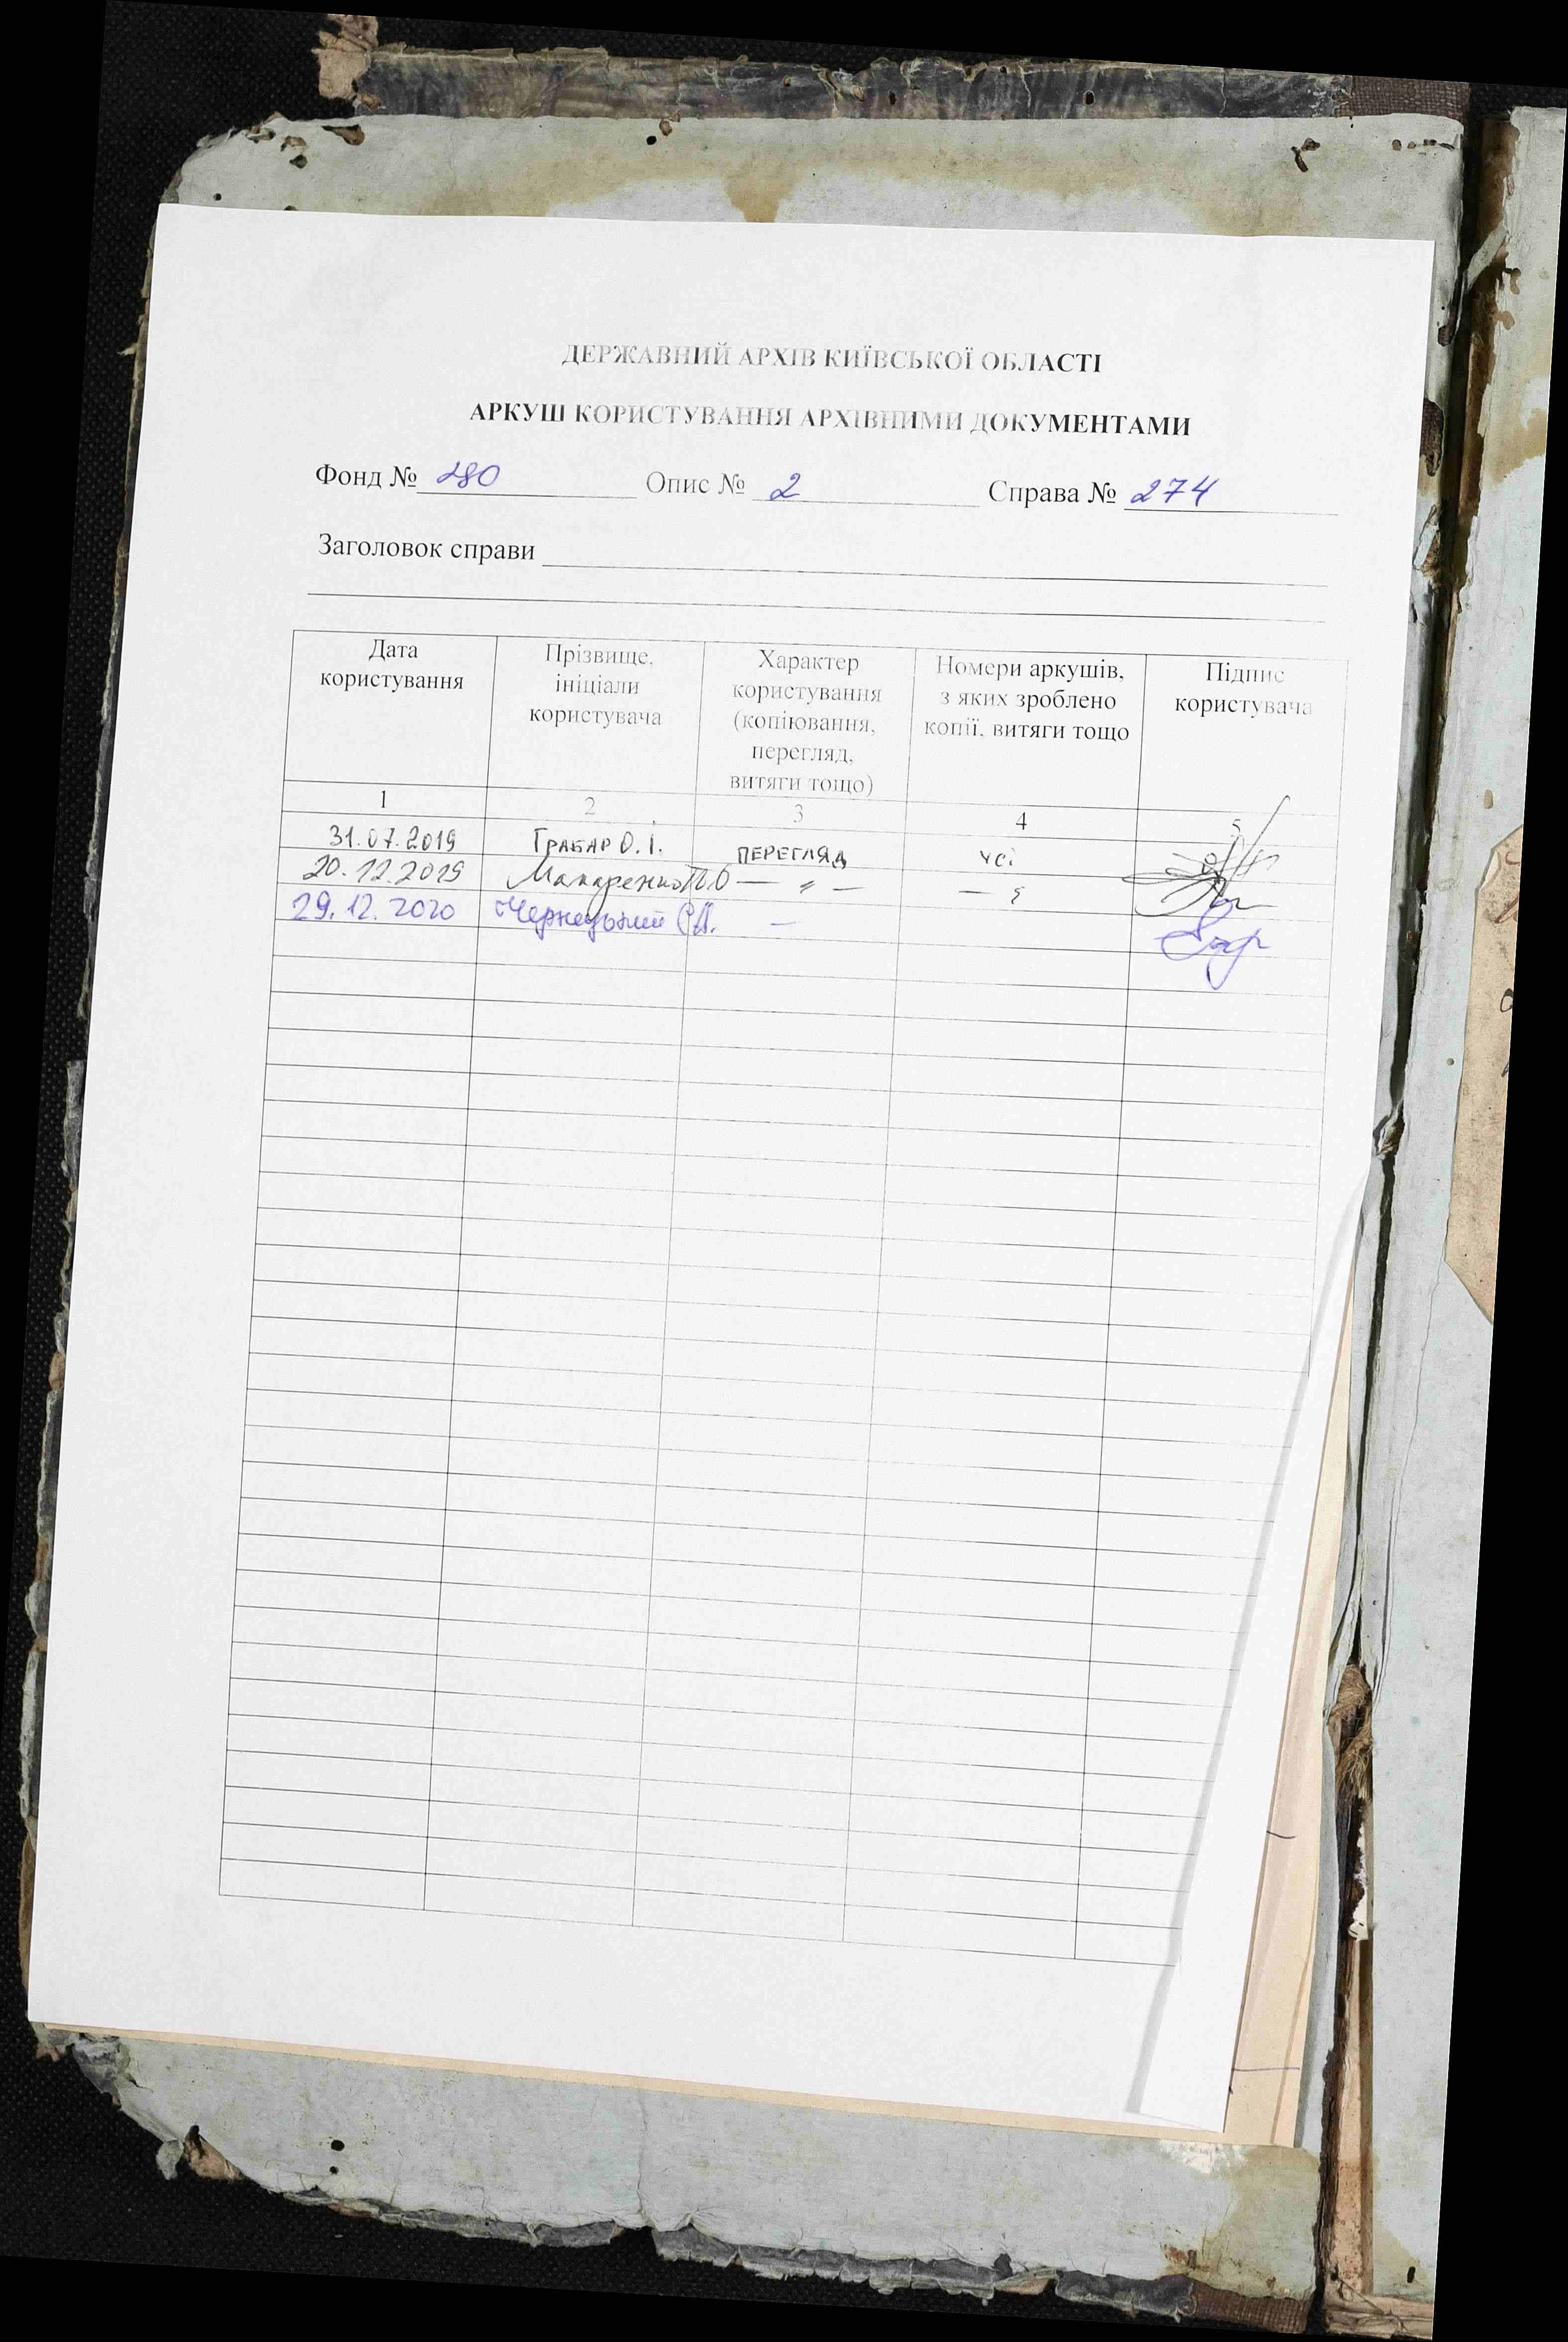 ДЕРЖАВНИЙ АРХІВ КИЇВСЬКОЇ ОБЛАСТІ
АРКУШ КОРИСТУВАННЯ АРХІВНИМИ ДОКУМЕНТАМИ
Фонд № 280 Опис № 2 Справа № 274
Заголовок справи
Дата користування
Прізвище, ініціали користувача
Характер користування (копіювання, перегляд, витяги тощо)
Номери аркушів, з яких зроблено копії, витяги тощо
Підпис користувача
1 2 3 4 5
31.07.2019 Грабар О. І. ПЕРЕГЛЯД усі
20.12.2019 Макаренко — " — — " 
29.12.2020 Чернецький —